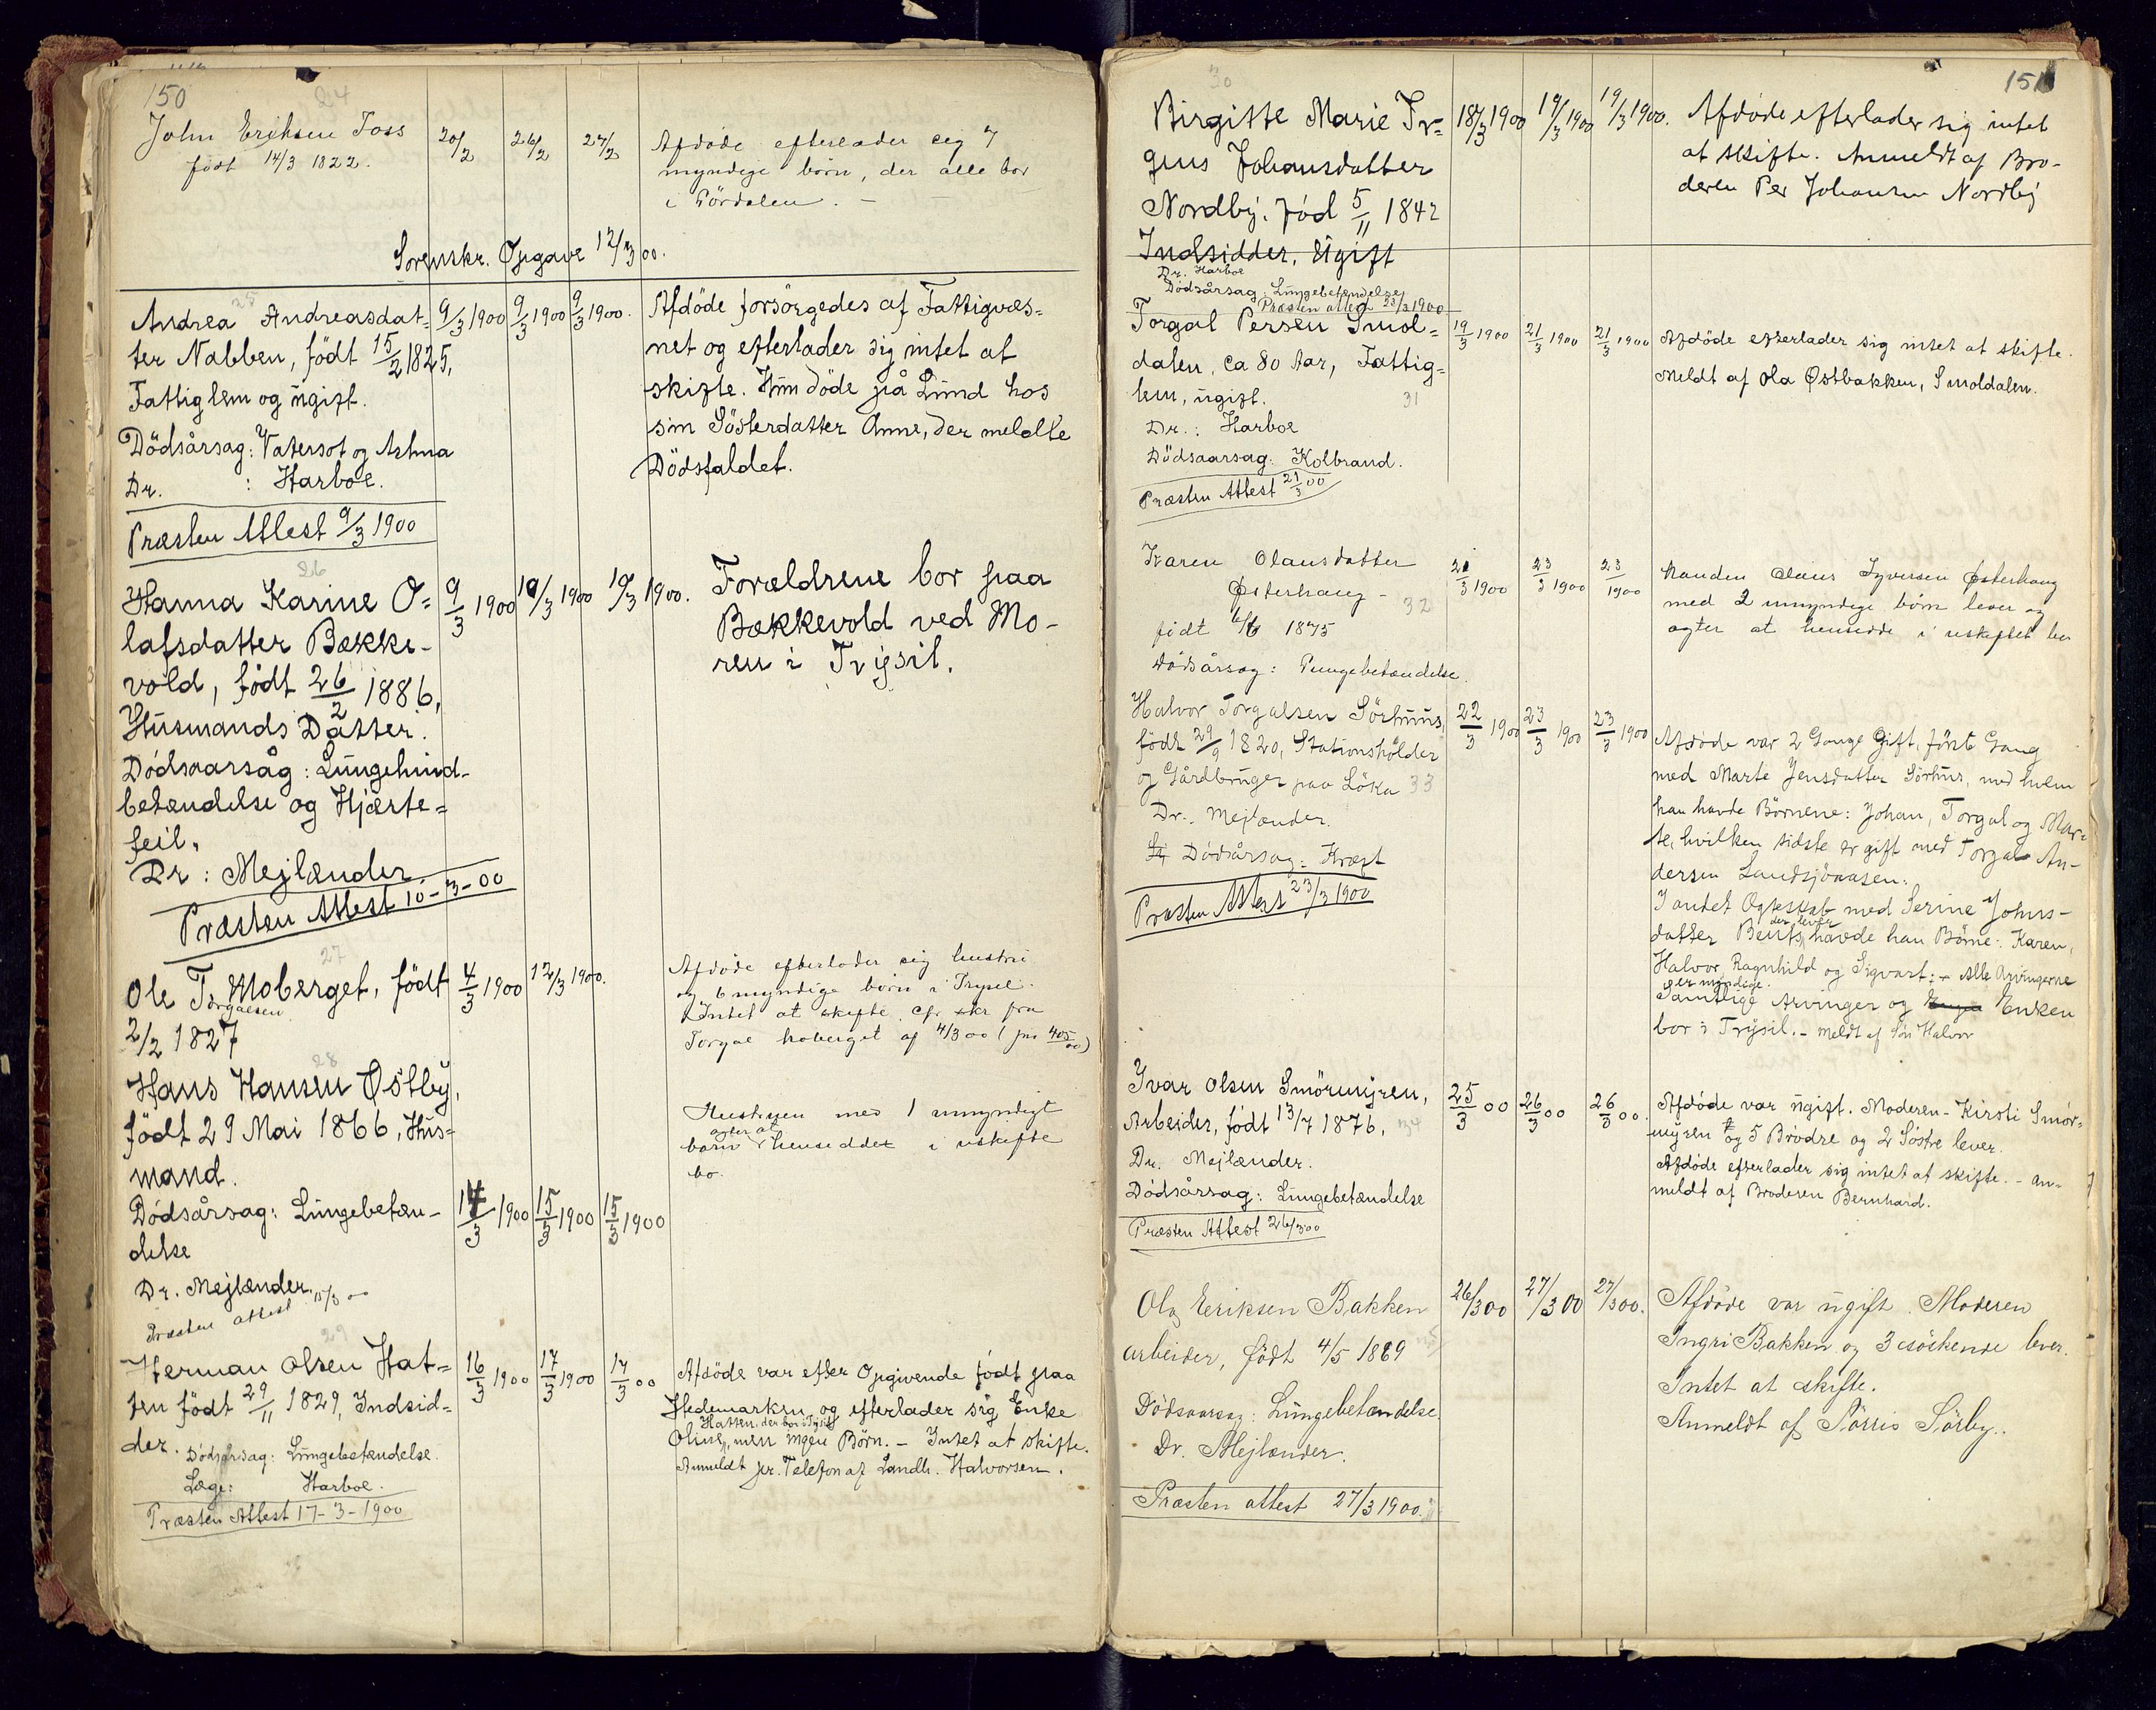 150
24
John Eriksen Foss
født 14/3 1822.
20/2
26/2
27/2
Afdøde efterlader sig 7
myndige børn, der alle bor
i Sördalen. –
Sorenskr. Opgave 12/3 00.
25
Andrea Andreasdat=
ter Nabben, født 15/2 1825,
Fattiglem og ugift.
Dödsårsag: Vatersot og Astma
Dr. : Harboe.
Præsten Attest 9/3 1900
9/3 1900
9/3 1900
9/3 1900.
Afdöde forsörgedes af Fattigvæs=
net og efterlader sig intet at
skifte. Hun döde på Lund hos
sin Sösterdatter Anne, der meldte
Dödsfaldet.
26
Hanna Karine O=
lafsdatter Bække-
vold, født 26/2 1886,
Husmands Datter.
Dödsaarsåg: Lungehind-
betændelse og Hjærte=
feil.
Dr: Mejlænder.
Præsten Attest 10-3-00
9/3 1900
10/3 1900
10/3 1900.
Forældrene bor paa
Bækkevold ved Mo-
ren i Trysil.
27
Ole T. Moberget, født
Torgalsen
2/2 1827
4/3 1900
12/3 1900.
Afdøde efterlader sig hustru
og 6 myndige börn i Trysil.
Intet at skifte. Cfr. skr fra
Torgal Moberget af 4/3 00 (jnr 405/00)
28
Hans Hansen Østby,
født 29 Mai 1866, Hus=
mand.
Dödsårsag: Lungebetæn-
delse
Dr. Mejlænder.
Præsten attest 15/3 00
14/3 1900
15/3 1900
15/3 1900
Hustruen med 1 umyndigt
barn agter at henseddet i uskifte
bo.
29
Herman Olsen Hat=
ten født 29/11 1829, Indsid=
der. Dödsårsag: Lungebetændelse.
Læge: Harboe.
Præsten Attest 17-3-1900
16/3 1900
17/3 1900
17/3 00
Afdöde var efter Opgivende født paa
Hedemarken og efterlader sig Enke
Hatten, der bor i Trysil
Oline, men ingen Börn. – Intet at skifte.
Anmeldt pr. Telefon af Landh. Halvorsen.
151
30
Birgitte Marie Tr=
gus Johansdatter
Nordby. Född 5/11 1842
Indsidder, Ugift
Dr. Harboe
Dödsårsag: Lungebetændelse
Præsten attest 23/3 1900
18/3 1900
19/3 1900
19/3 1900.
Afdøde efterlader sig intet
at skifte. Anmeldt af Bro-
deren Per Johansen Nordby
Torgal Persen Smol=
dalen, ca 80 Aar, Fattig=
lem, ugift.
31
Dr.: Harboe
Dödsaarsag: Kolbrand.
Præsten Attest 21/3 00
19/3 1900
21/3 1900
21/3 1900
Afdöde efterlader sig intet at skifte.
Meldt af Ola Østbakken, Smoldalen.
Karen Olausdatter
Østerhaug –
32
født 6/6 1875
Dødsårsag: Lungebetændelse.
21/3 1900
23/3 1900
23/3 1900
Manden Olaus Syversen Østerhaug
med 2 umyndige börn lever og
agter at hensidde i uskiftet bo
Halvor Torgalsen Sörhuus,
født 29/9 1820, Stationsholder
og Gårdbruger paa Löka
33
Dr. Mejlænder.
Dödsårsag: Kræft
Præsten Attest 23/3 1900
22/3 1900
23/3 1900
23/3 1900
Afdöde var 2 Gange Gift, först Gang
med Marte Jensdatter Sörhus, med hvem
han havde Börnene: Johan, Torgal og Mar=
te, hvilken sidste er gift med Torgal An-
dersen Landsjöaasen.
I andet Ægteskab med Serine Johns-
der lever
datter Bents, havde han Börne: Karen,
Halvor, Ragnhild og Sigvart. – Alle Arvingerne
er myndige.
Samtlige Arvinger og Enken
bor i Trysil. – Meldt af Sön Halvor
Ivar Olsen Smörmyren,
Arbeider, født 13/7 1876.
34
Dr. Mejlænder.
Dödsårsag: Lungebetændelse
Præsten Attest 26/3 00
25/3 00
26/3 00
26/3 00.
Afdöde var ugift. Moderen – Kirsti Smör=
myren og 5 Brödre og 2 Söstre lever.
Afdöde efterlader sig intet at skifte. – An-
meldt af Broderen Bernhard.
Ola Eriksen Bakken
arbeider, född 4/5 1869
35
Dödsaarsag: Lungebetændelse.
Dr. Mejlænder.
Præsten attest 27/3 1900.
26/3 00
27/3 00
27/3 00.
Afdöde var ugift. Moderen
Ingri Bakken og 3 söskende lever.
Intet at skifte.
Anmeldt af Sörby.